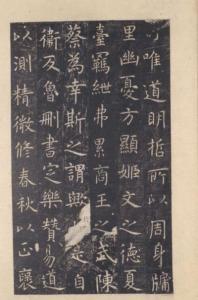 唯道明哲所以周身牖
里幽憂方顯姬文之德夏
臺羈紲弗累商王之武陳
蔡為幸斯之謂與是自
衛反魯刪書定樂贊易道
以測精微修春秋以正褒